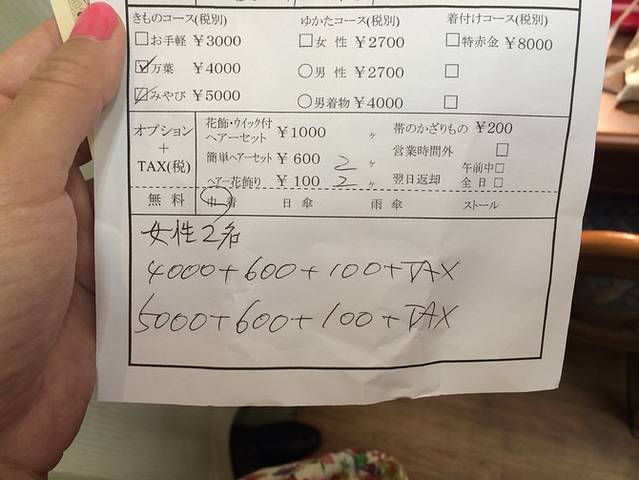 きものコース(税別) ゆかたコース(税別) 着付けコース(税別)
お手軽 ¥3000 女性 ¥2700 特赤金 ¥8000
万葉 ¥4000 男性 ¥2700
みやび ¥5000 男着物 ¥4000
オプション + TAX(税)
花飾・ウイック付 ヘアーセット ¥1000 ヶ 帯のかざりもの ¥200
営業時間外
簡単ヘアーセット ¥600 2ヶ 午前中
ヘアー花飾り ¥100 2ヶ 翌日返却 全日
無料 巾着 日傘 雨傘 ストール
女性2名
4000+600+100+TAX
5000+600+100+TAX